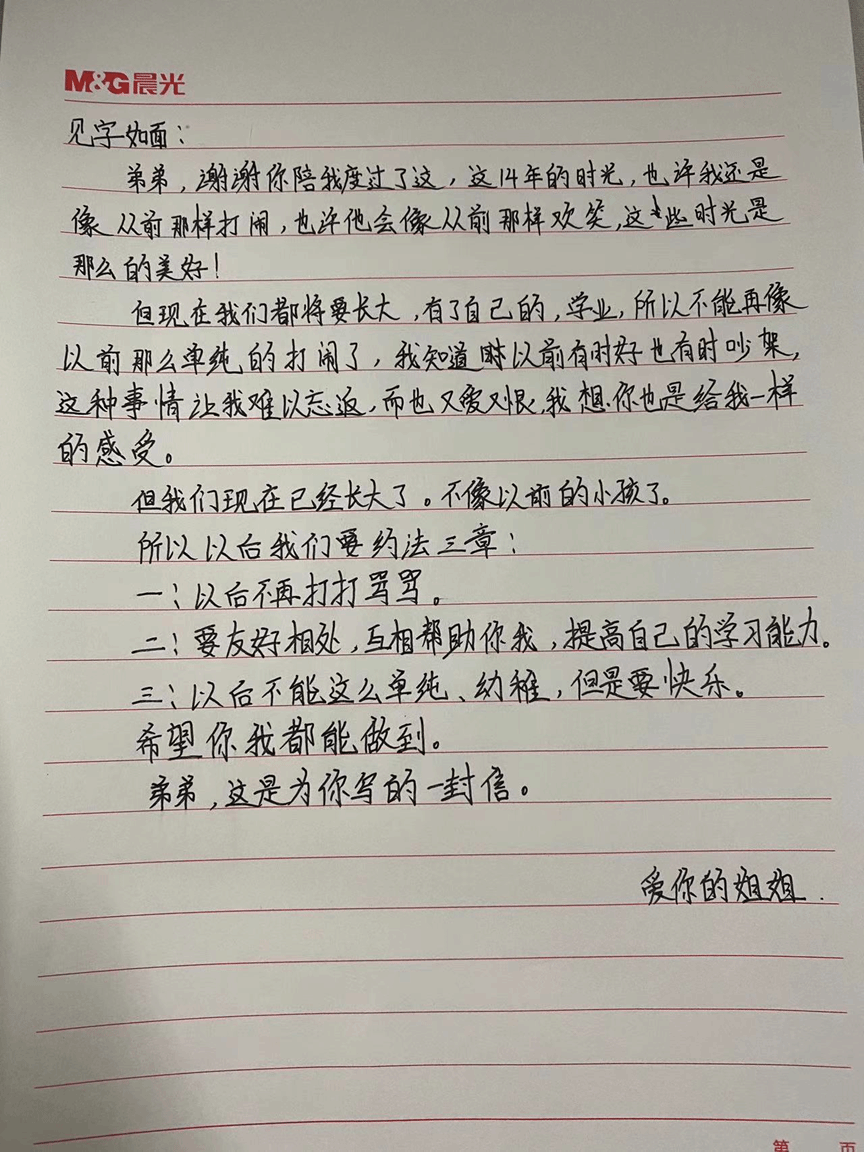 M&G晨光
见字如面：
弟弟，谢谢你陪我度过了这，这14年的时光，也许我还是
像从前那样打闹，也许他会像从前那样欢笑，这些时光是
那么的美好！
但现在我们都将要长大，有了自己的，学业，所以不能再像
以前那么单纯的打闹了，我知道以前有时好也有时吵架，
这种事情让我难以忘返，而也又爱又恨，我想你也是给我一样
的感受。
但我们现在已经长大了。不像以前的小孩了。
所以以后我们要约法三章：
一：以后不再打打骂骂。
二：要友好相处，互相帮助你我，提高自己的学习能力。
三：以后不能这么单纯、幼稚，但是要快乐。
希望你我都能做到。
弟弟，这是为你写的一封信。
爱你的姐姐.
第 页